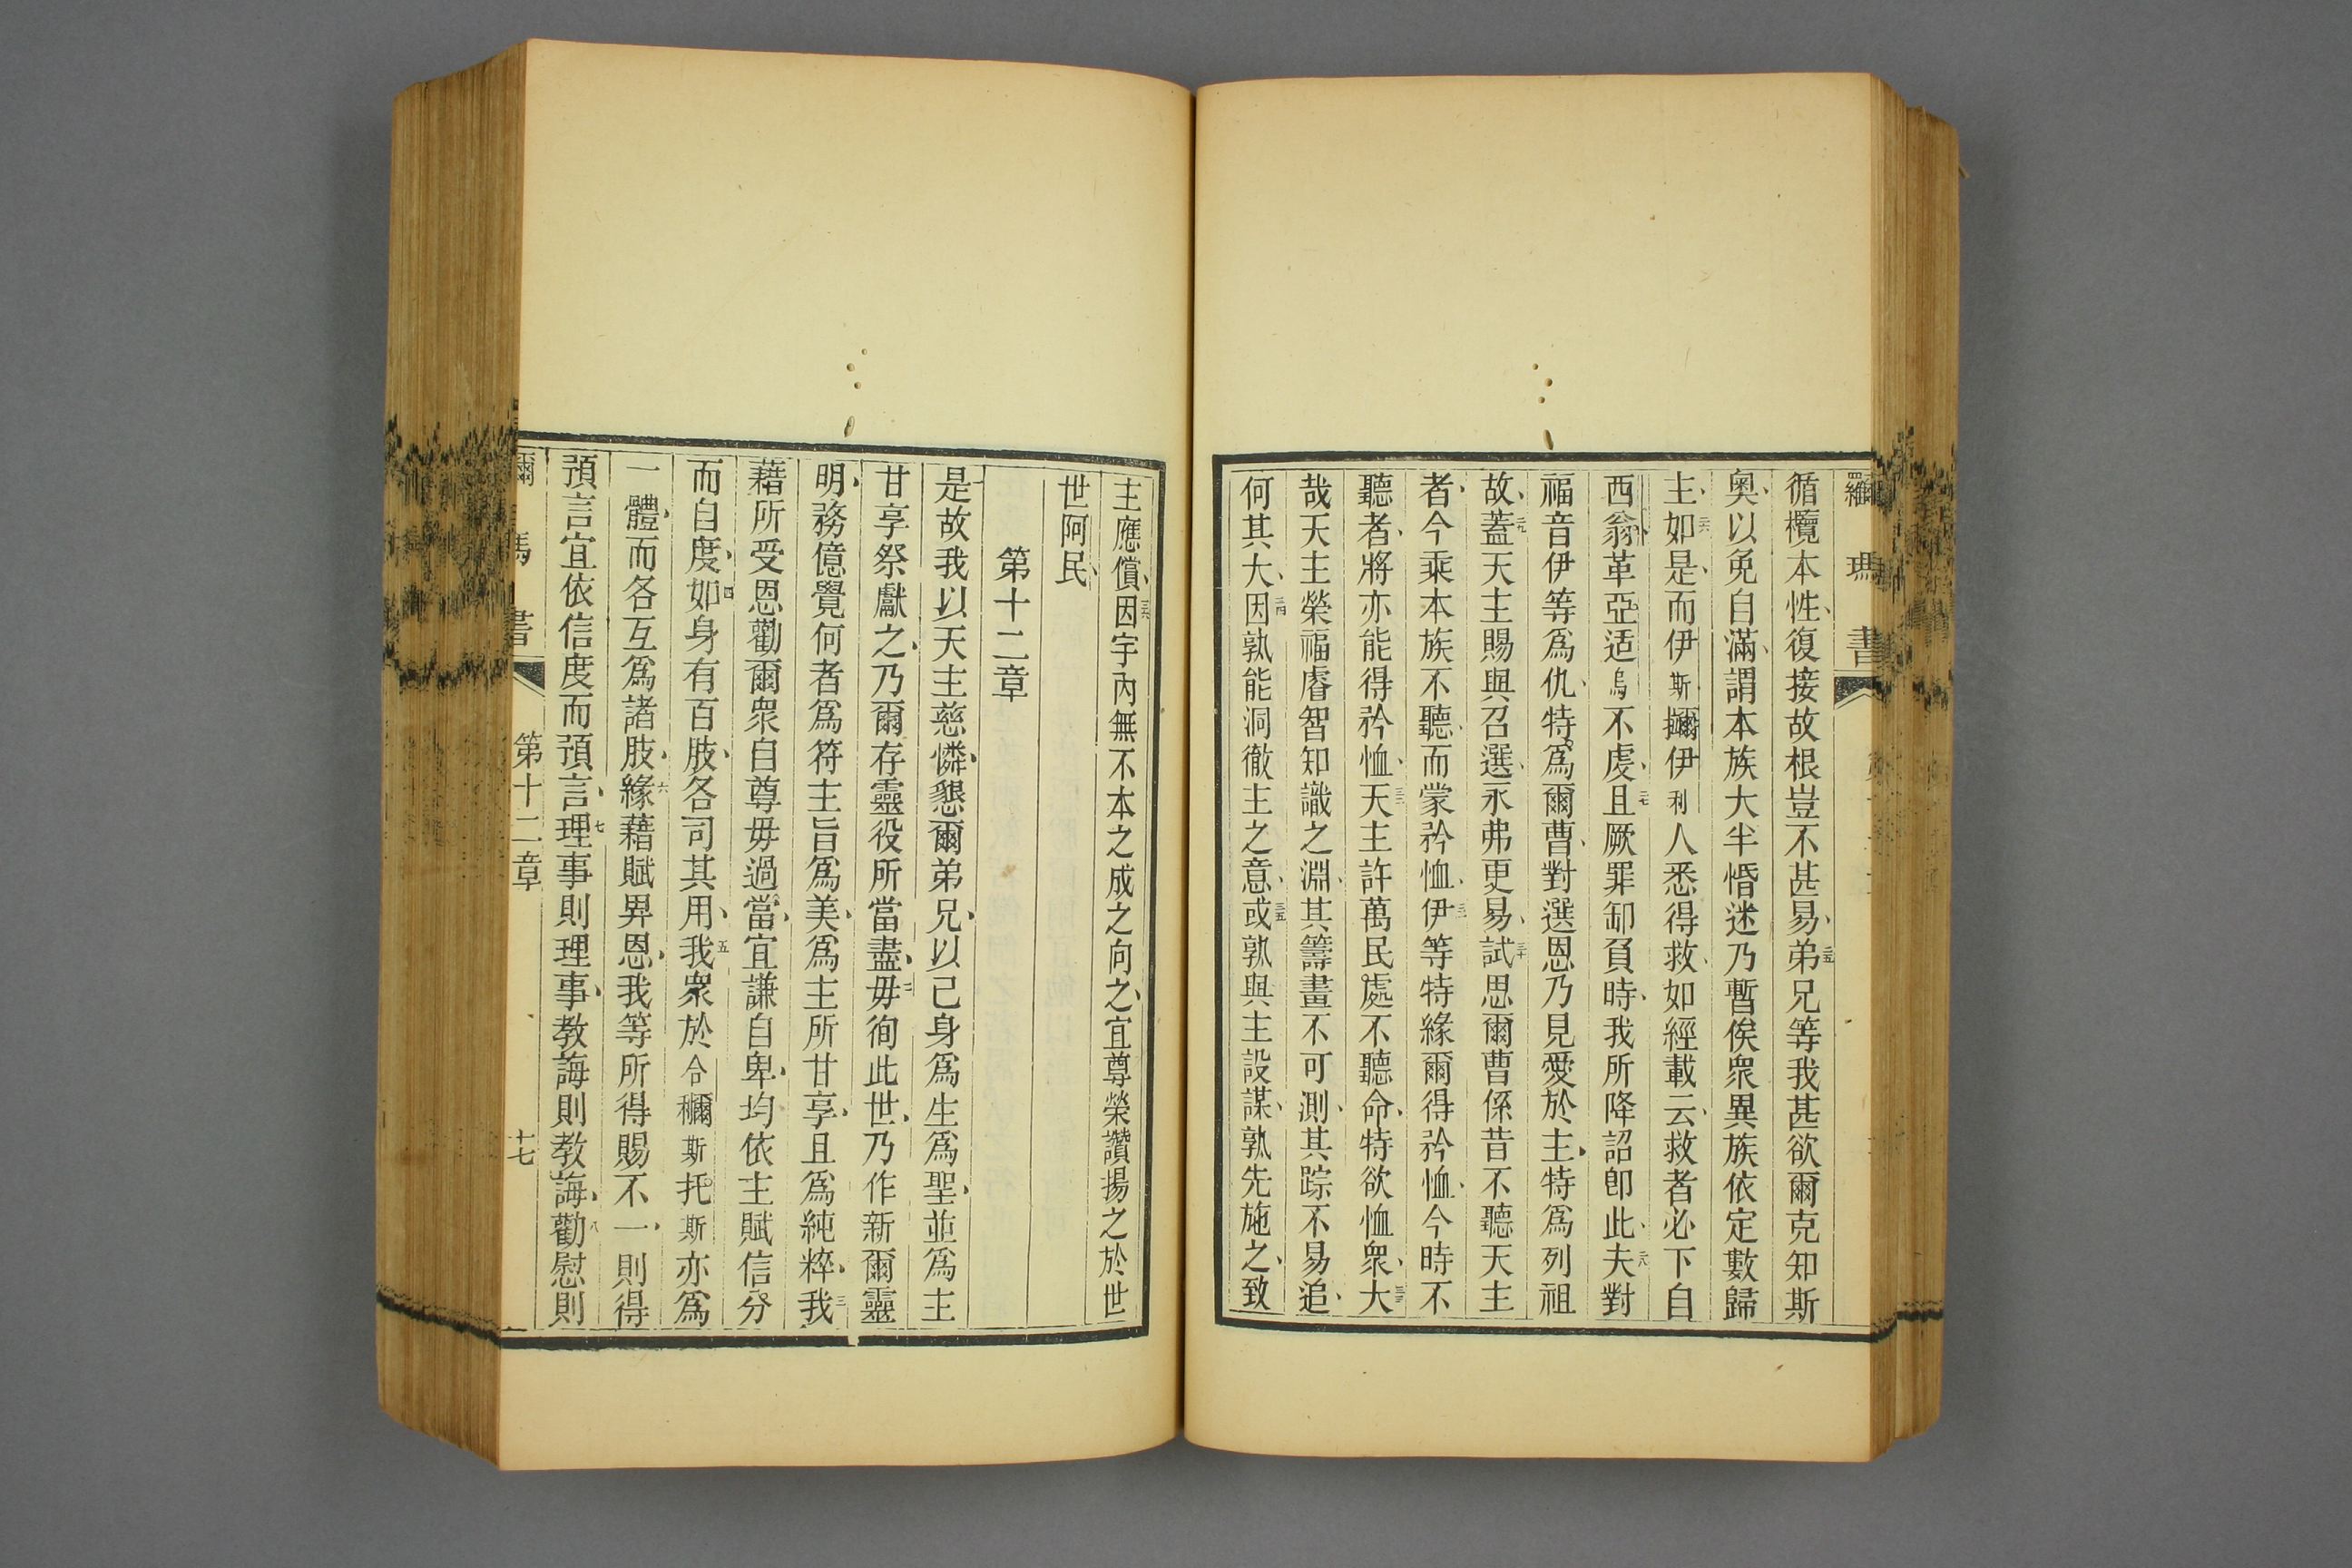 羅瑪書
循欖本性、復接故根豈不甚易、二五弟兄等我甚欲爾克知斯
奧、以免自滿、謂本族大半惛迷乃暫俟衆異族依定數歸
主、二六如是、而伊斯𭡞伊利人悉得救、如經載云、救者必下自
西翁、革亞适烏不虔、二七且厥罪卸負時、我所降詔卽此、二八夫對
福音伊等爲仇、特爲爾曹、對選恩乃見愛於主、特爲列祖
故、二九蓋天主賜與召選、永弗更易、三十試思爾曹係昔不聽天主
者、今乘本族不聽、而蒙矜恤、三一伊等特緣爾得矜恤、今時不
聽者、將亦能得矜恤、三二天主許萬民處不聽命、特欲恤衆、三三大
哉天主榮福睿智知識之淵、其籌畫不可測、其踪不易追、
何其大、三四因孰能洞徹主之意、三五或孰與主設謀、孰先施之、致
主應償、三六因宇內無不本之成之向之、宜尊榮讚揚之於世
世阿民、
第十二章
一是故我以天主慈憐、懇爾弟兄、以己身爲生爲聖、並爲主
甘享祭獻之、乃爾存靈役所當盡、二毋徇此世、乃作新爾靈
明、務億覺何者爲符主旨爲美、爲主所甘享、且爲純粹、三我
藉所受恩勸爾衆自尊毋過當、宜謙自卑、均依主賦信分
而自度、四如身有百肢、各司其用、五我衆於合𥣡斯托斯亦爲
一體、而各互爲諸肢、六緣藉賦畀恩、我等所得賜不一、則得
預言宜依信度而預言、七理事則理事、教誨則教誨、八勸慰則
馬書
第十二章
十七